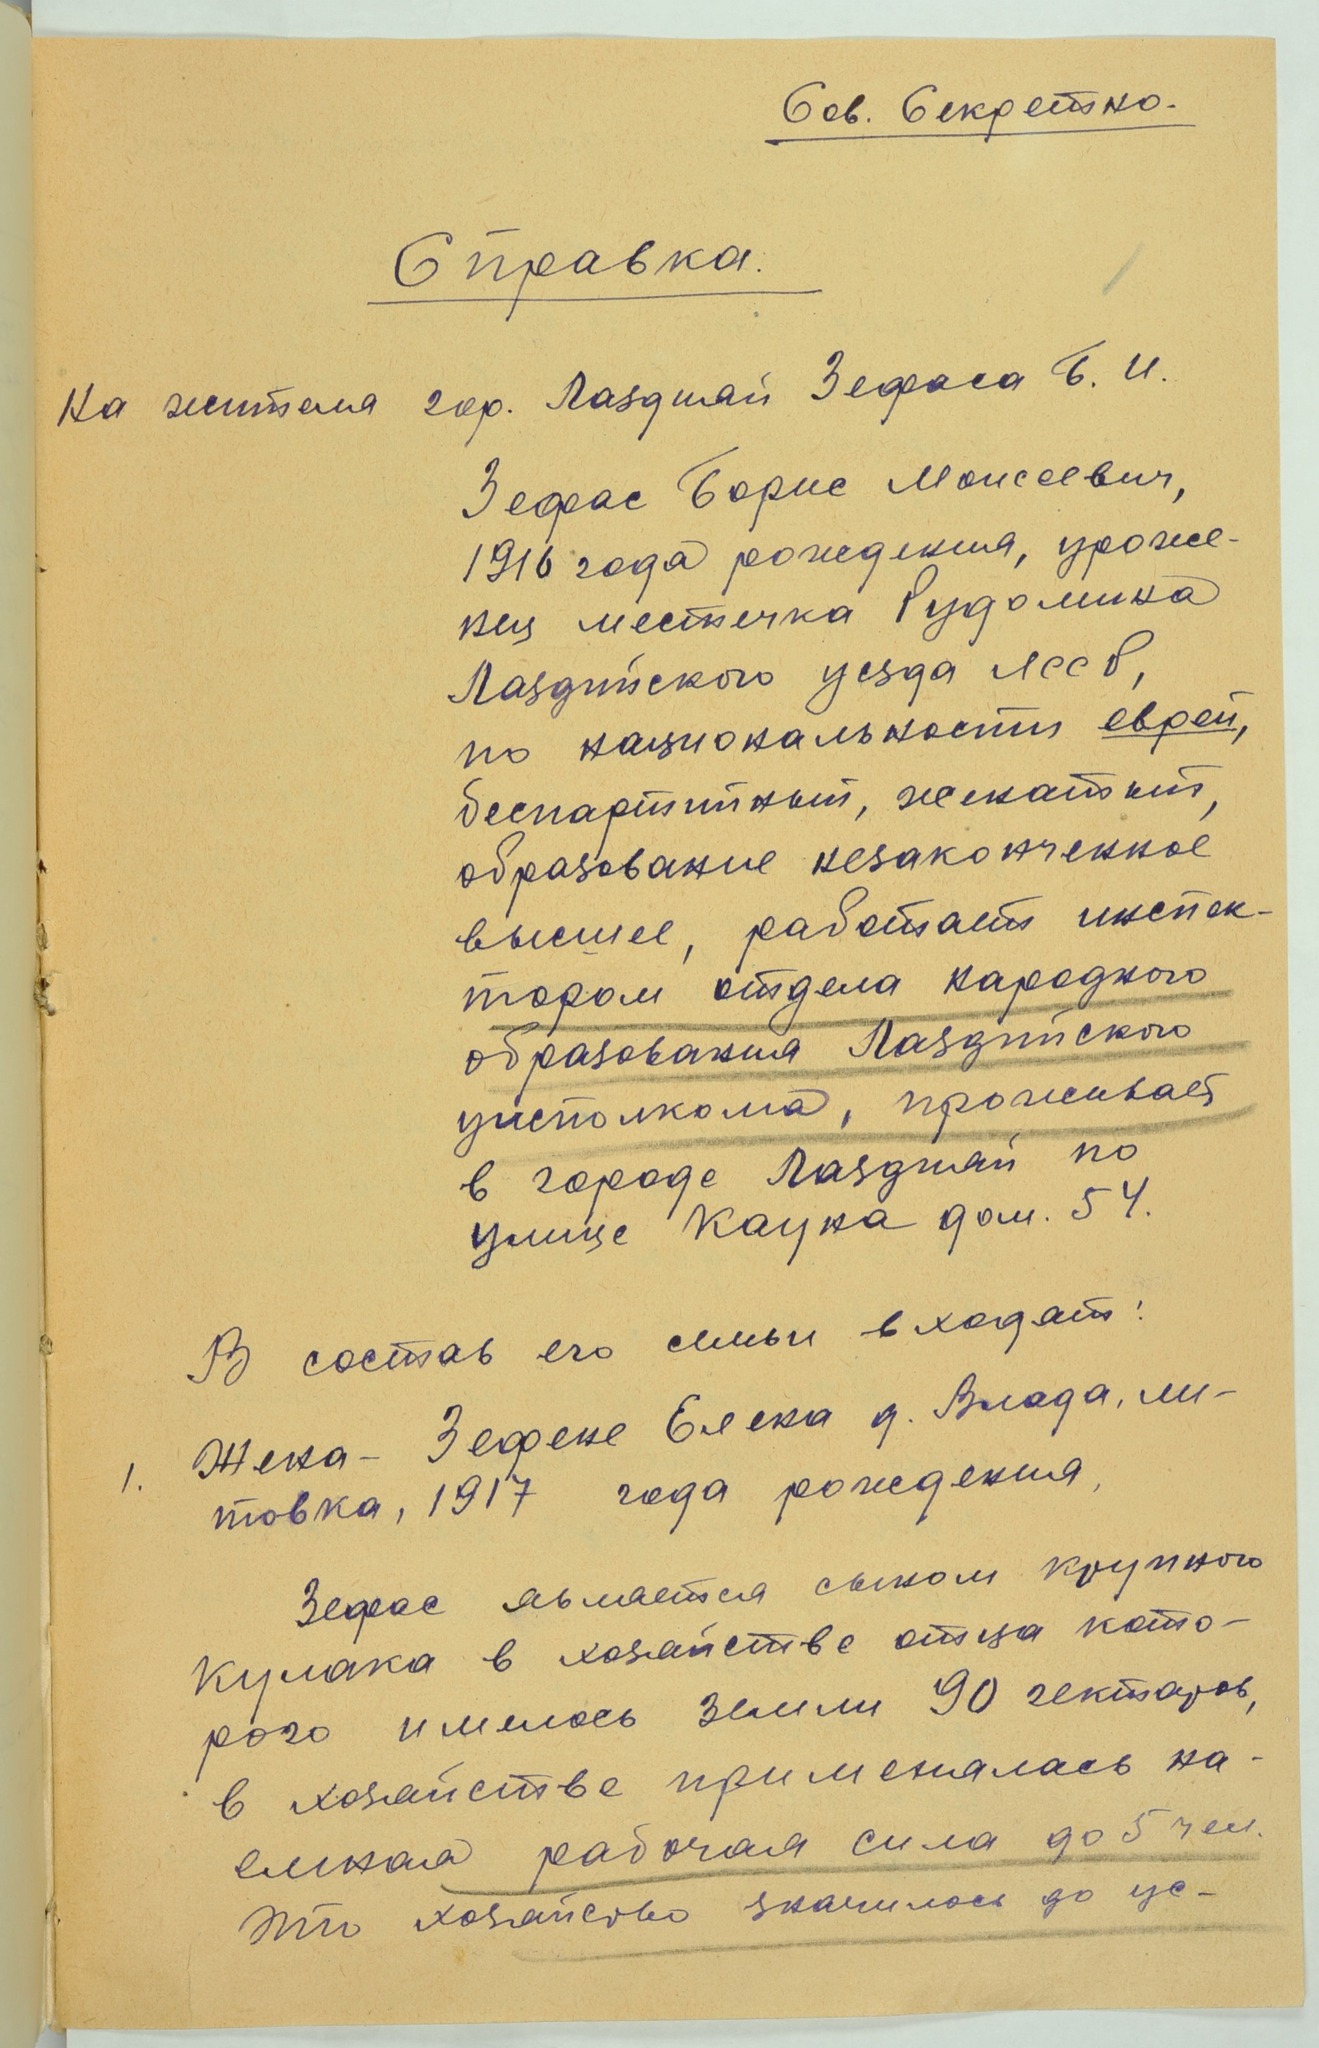 Сов. Секретно.
Справка.
На жителя гор. Лаздияй Зефаса Б. И.
Зефас Борис Моисеевич,
1916 года рождения, уроже-
нец местечка Рудомина
Лаздийского уезда ЛССР,
по национальности еврей,
беспартийный, женатый,
образование незаконченное
высшее, работает инспек-
тором отдела народного
образования Лаздийского
уисполкома, проживает
в городе Лаздияй по
улице Кауна дом. 54.
В состав его семьи входят:
1. Жена - Зефене Елена д. Влада, ли-
товка, 1917 года рождения,
Зефас является сыном крупного
кулака в хозяйстве отца кото-
рого имелось земли 90 гектаров,
в хозяйстве применялась на-
емная рабочая сила до 5 чел.
Это хозяйство значилось до ус-